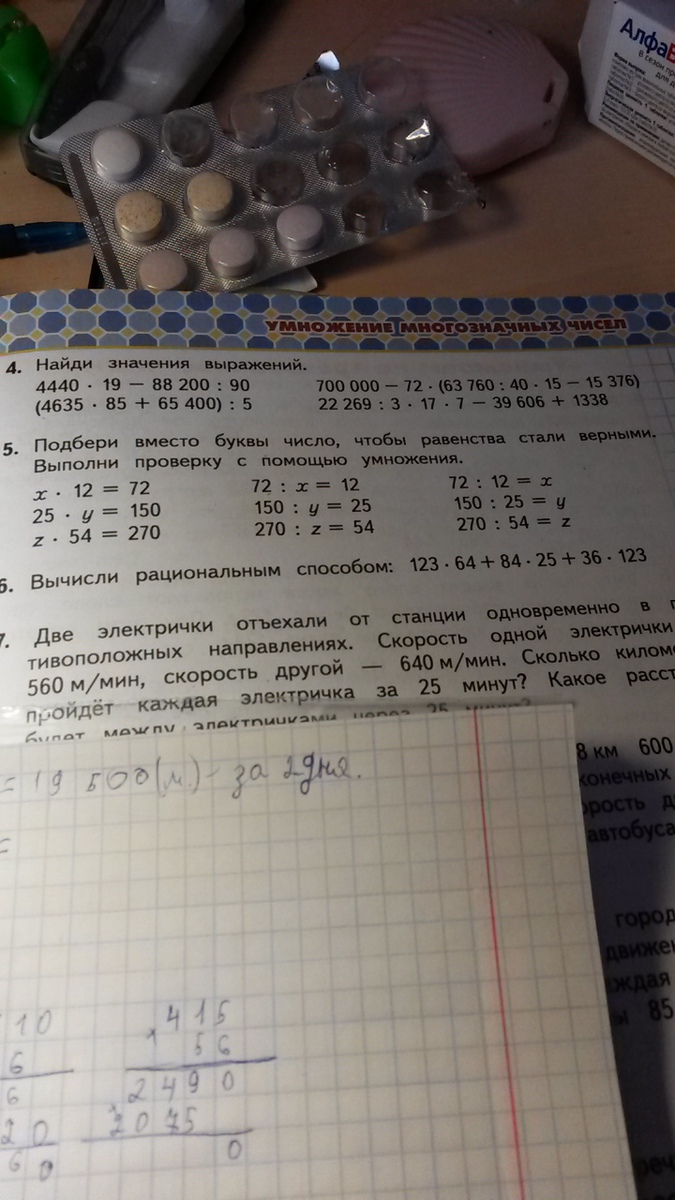 Алфа
УМНОЖЕНИЕ МНОГОЗНАЧНЫХ ЧИСЕЛ
4. Найди значения выражений.
4440 · 19 − 88 200 : 90 700 000 − 72 · (63 760 : 40 · 15 − 15 376)
(4635 · 85 + 65 400) : 5 22 269 : 3 · 17 · 7 − 39 606 + 1338
5. Подбери вместо буквы число, чтобы равенства стали верными.
Выполни проверку с помощью умножения.
x · 12 = 72 72 : x = 12 72 : 12 = x
25 · y = 150 150 : y = 25 150 : 25 = y
z · 54 = 270 270 : z = 54 270 : 54 = z
6. Вычисли рациональным способом: 123 · 64 + 84 · 25 + 36 · 123
7. Две электрички отъехали от станции одновременно в
тивоположных направлениях. Скорость одной электрички
560 м/мин, скорость другой — 640 м/мин. Сколько килом
пройдёт каждая электричка за 25 минут? Какое расст
будет между электричками через 25 минут?
8 км 600
конечных
автобуса
= 19 500 (м) - за 2 дня.
=
город
движен
85
10
6
6
20
60
415
56
2490
2075
0